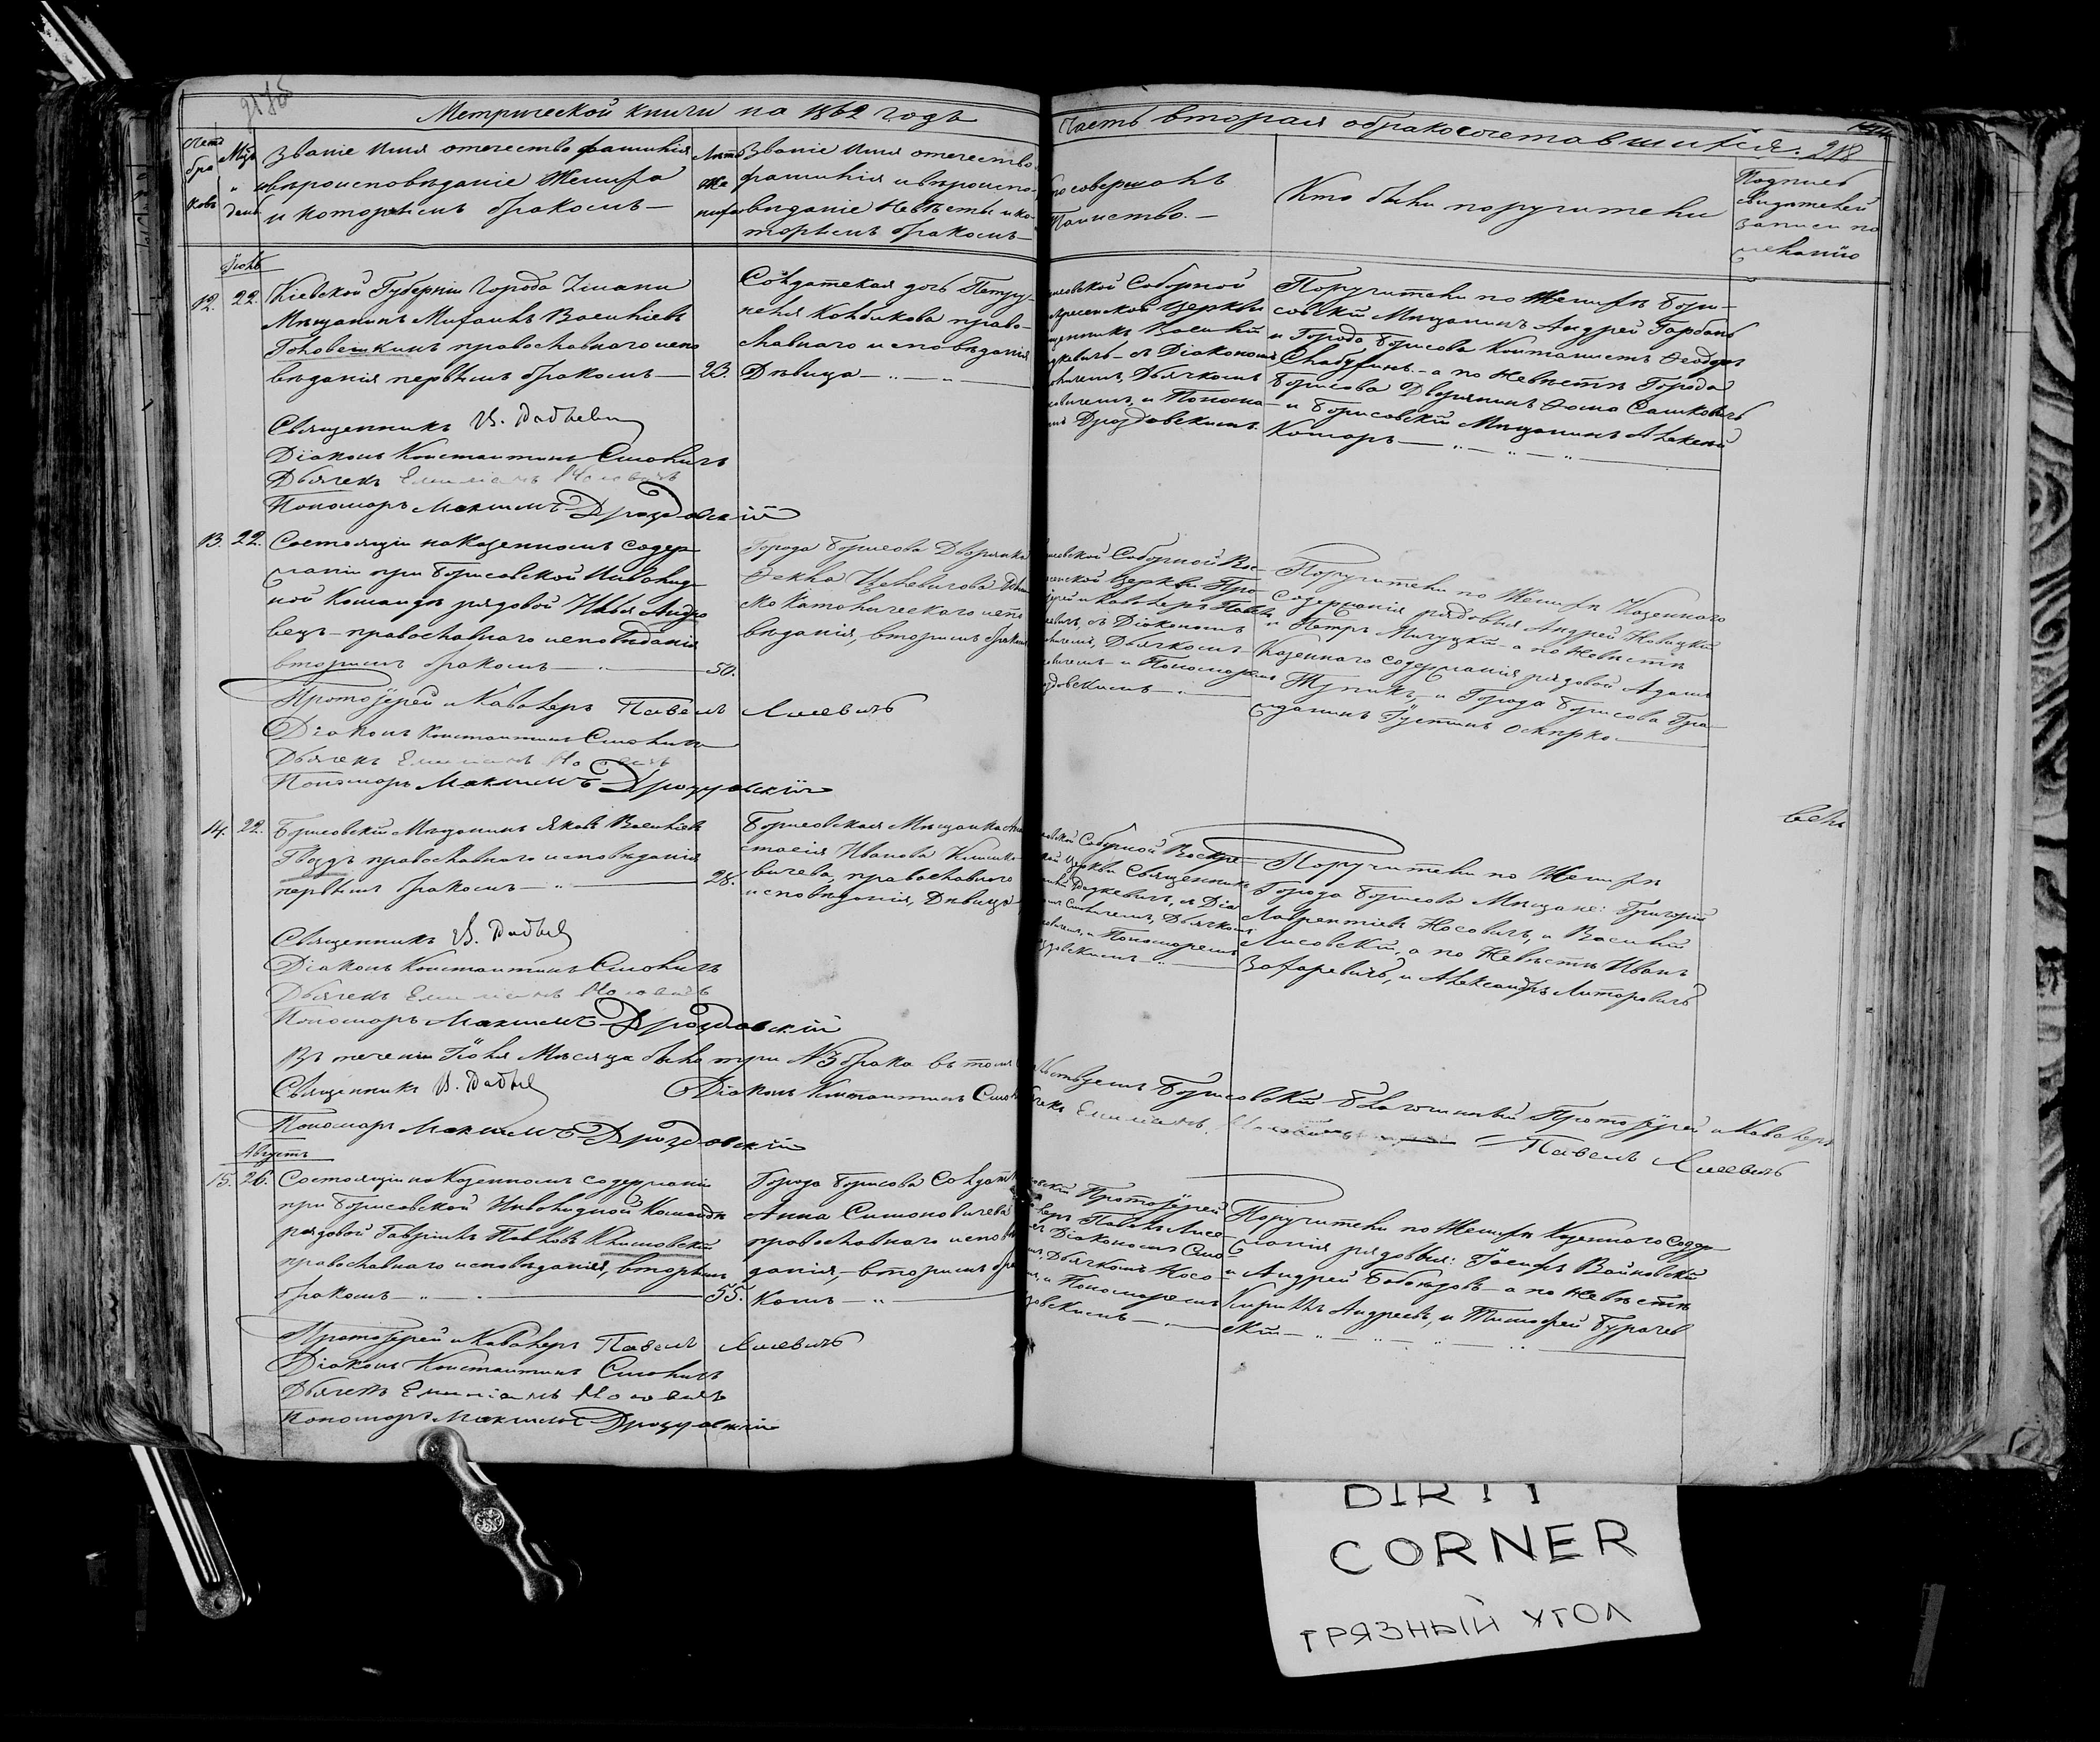 Метрической книги на 1862 годъ
Часть вторая о бракосочетавшихся. 218
Счетъ браковъ
Мѣс. и день
Званіе имя отечество фамилія
и вѣроисповѣданіе Жениха
и которымъ бракомъ —
Лѣта жениха
Званіе имя отечество
фамилія и вѣроиспо-
вѣданіе Невѣсты и ко-
торымъ бракомъ —
Кто совершалъ
Таинство. —
Кто были поручители
Подпись
свидѣтелей
записи по
желанію
Іюль
12. 22. Кіевской Губерніи Города Умани
Мѣщанинъ Михаилъ Васильевъ
Головешкинъ православнаго испо
вѣданія первымъ бракомъ — 23.
Солдатская дочь Петру-
неля Колбикова право-
славнаго исповѣданія
Дѣвица —
Соборной
Церкви
Василій
съ Діакономъ
Дьячкомъ
и Понома-
Дроздовскимъ.
Поручители по Женихѣ Бори-
совскій Мѣщанинъ Андрей Горбань
и Города Борисова Ѳеодоръ
а по Невѣстѣ Города
Борисова Дворянинъ Ѳома Сашковичъ
и Борисовскій Мѣщанинъ Алексѣй
Комаръ —
Священникъ В.
Діаконъ Константинъ Смоличъ
Дьячекъ Емиліанъ Носовичъ
Пономарь Максимъ Дроздовскій
13. 22. Состоящій на Казенномъ содер
жаніи при Борисовской Инвалид
ной Командѣ рядовой Илья Андро
вецъ — православнаго исповѣданія
вторымъ бракомъ — 50.
Города Борисова Дворянка
Ѳекла
Католическаго испо
вѣданія, вторымъ бракомъ
Соборной Вос-
Церкви Про-
и Кавалеръ Павелъ
съ Діакономъ
Дьячкомъ
и Пономаремъ
Поручители по Женихѣ Казеннаго
содержанія рядовые Андрей Новицкій
и Петръ а по Невѣстѣ
Казеннаго содержанія рядовой Адамъ
и Города Борисова Гра-
жданинъ Іустинъ Оскирко —
Протоіерей и Кавалеръ Павелъ Лисевичъ
Діаконъ Константинъ Смоличъ
Дьячекъ Емиліанъ Носовичъ
Пономарь Максимъ Дроздовскій
14. 22. Борисовскій Мѣщанинъ Яковъ Васильевъ
Гвоздь православнаго исповѣданія
первымъ бракомъ — 28.
Борисовская Мѣщанка Ана
стасія Иванова Климко-
вичева, православнаго
исповѣданія, Дѣвица
Соборной Воскре-
Церкви Священникъ
съ Діа
Смоличемъ, Дьячкомъ
и Пономаремъ
Поручители по Женихѣ
Города Борисова Мѣщане: Григорій
Лаврентіевъ Носовичъ, и Василій
Лисовскій, а по Невѣстѣ Иванъ
Захаревичъ, и Александръ Литаровичъ
Священникъ В.
Діаконъ Константинъ Смоличъ
Дьячекъ Емиліанъ Носовичъ
Пономарь Максимъ Дроздовскій
Въ теченіи Іюля Мѣсяца было три №3 брака въ томъ
Борисовскій Благочинный Протоіерей и Кавалеръ
Павелъ Лисевичъ
Священникъ В. Діаконъ Константинъ
Емиліанъ Носовичъ
Пономарь Максимъ Дроздовскій
Августъ
15. 26. Состоящій на Казенномъ содержаніи
при Борисовской Инвалидной Командѣ
рядовой Гавріилъ Павловъ Климовскій
православнаго исповѣданія, вторымъ
бракомъ — 55.
Города Борисова Солдат
Анна Симоновичева
православнаго исповѣ
данія, — вторымъ бра
комъ —
Протоіерей
Павелъ Лисе-
Діакономъ Смо-
Дьячкомъ Носо-
и Пономаремъ
Поручители по Женихѣ Казеннаго содер-
жанія рядовые: Іосифъ Войновскій
и Андрей а по Невѣстѣ
Кириллъ Андреевъ, и Тимофей Бурачев
скій —
Протоіерей и Кавалеръ Павелъ Лисевичъ
Діаконъ Константинъ Смоличъ
Дьячекъ Емиліанъ Носовичъ
Пономарь Максимъ Дроздовскій
DIRTY
CORNER
ГРЯЗНЫЙ УГОЛ